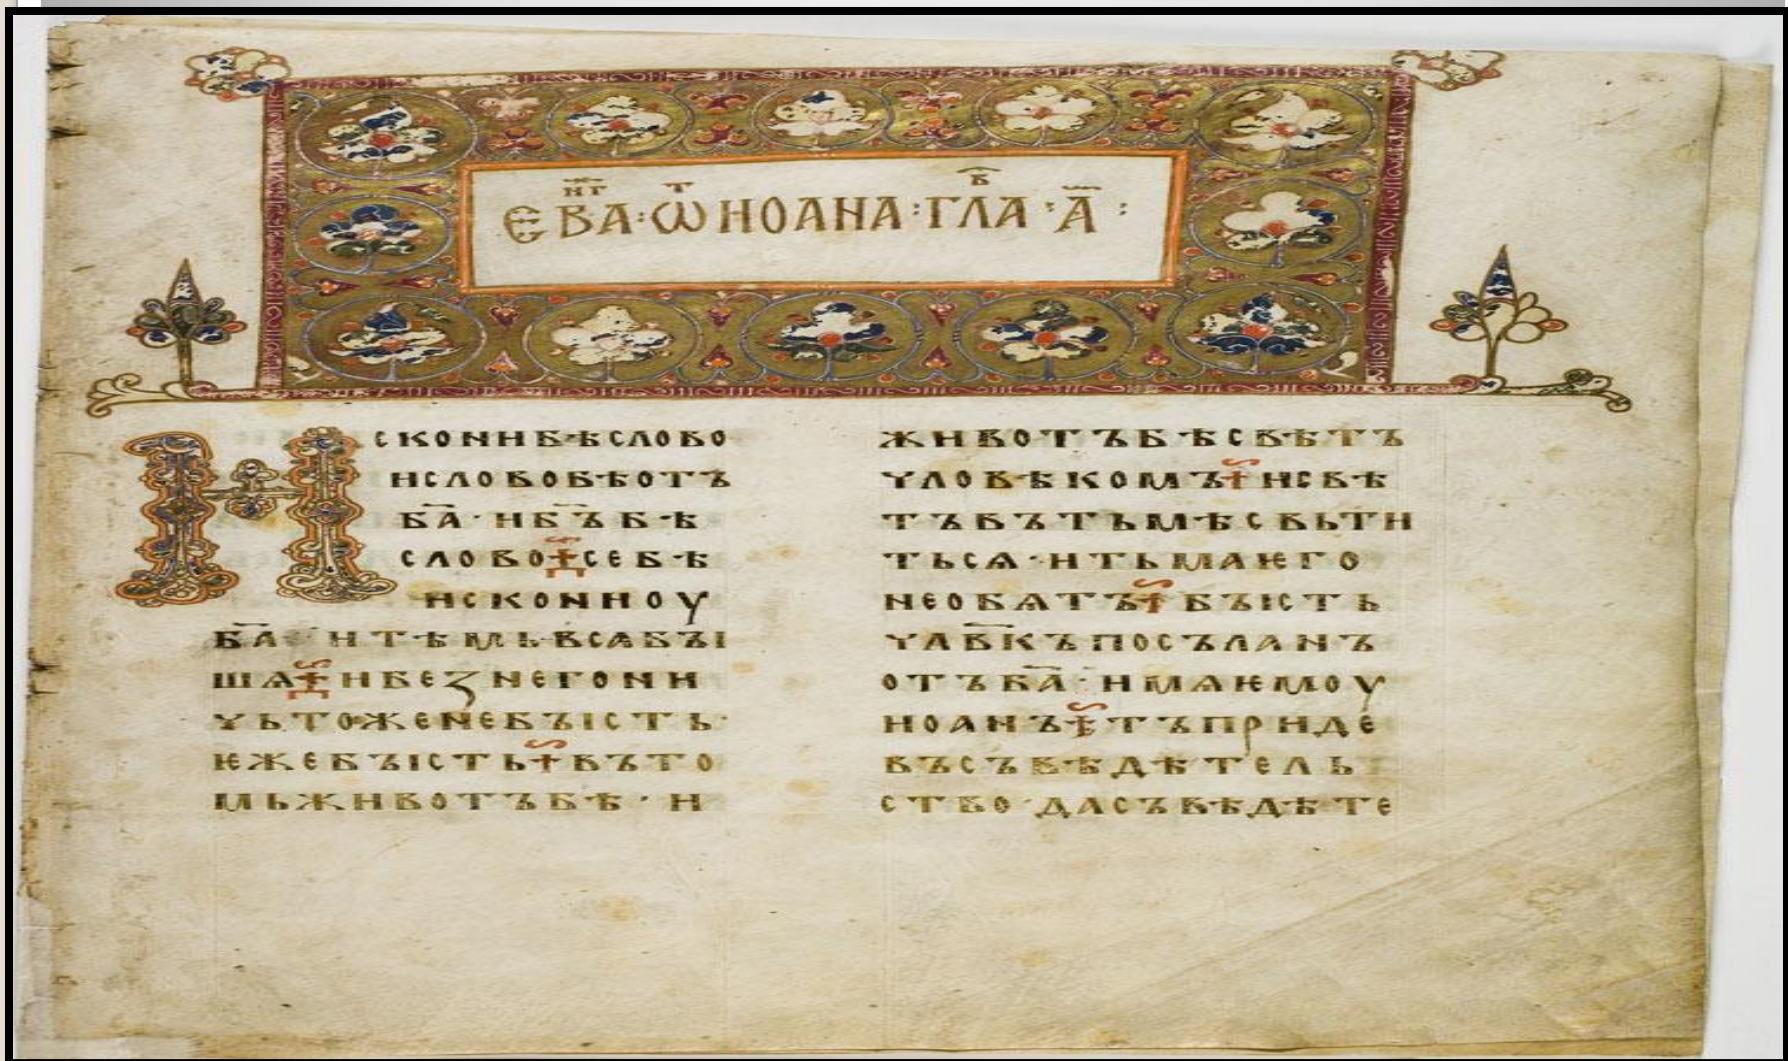 ЄВАНГ · ѾТ ИОАНА : ГЛАВ · А҃ :
Искони бѣ слово
и слово бѣ отъ
б҃а · и б҃ъ бѣ
слово ⁜ се бѣ
искони оу
б҃а · и тѣмь вся бꙑ
шѧ ⁜ и без него ни
чьтоже не бꙑсть ·
ѥже бꙑсть ⁜ въ то
мь животъ бѣ · и
животъ бѣ свѣтъ
чловѣкомъ ⁜ и свѣ
тъ въ тьмѣ свьти
тьсѧ · и тьма ѥго
не обѧтъ ⁜ бꙑсть
чл҃вкъ посъланъ
отъ б҃а · имѧ ѥмоу
иоанъ ⁜ тъ приде
въ съвѣдѣтель
ство · да съвѣдѣте